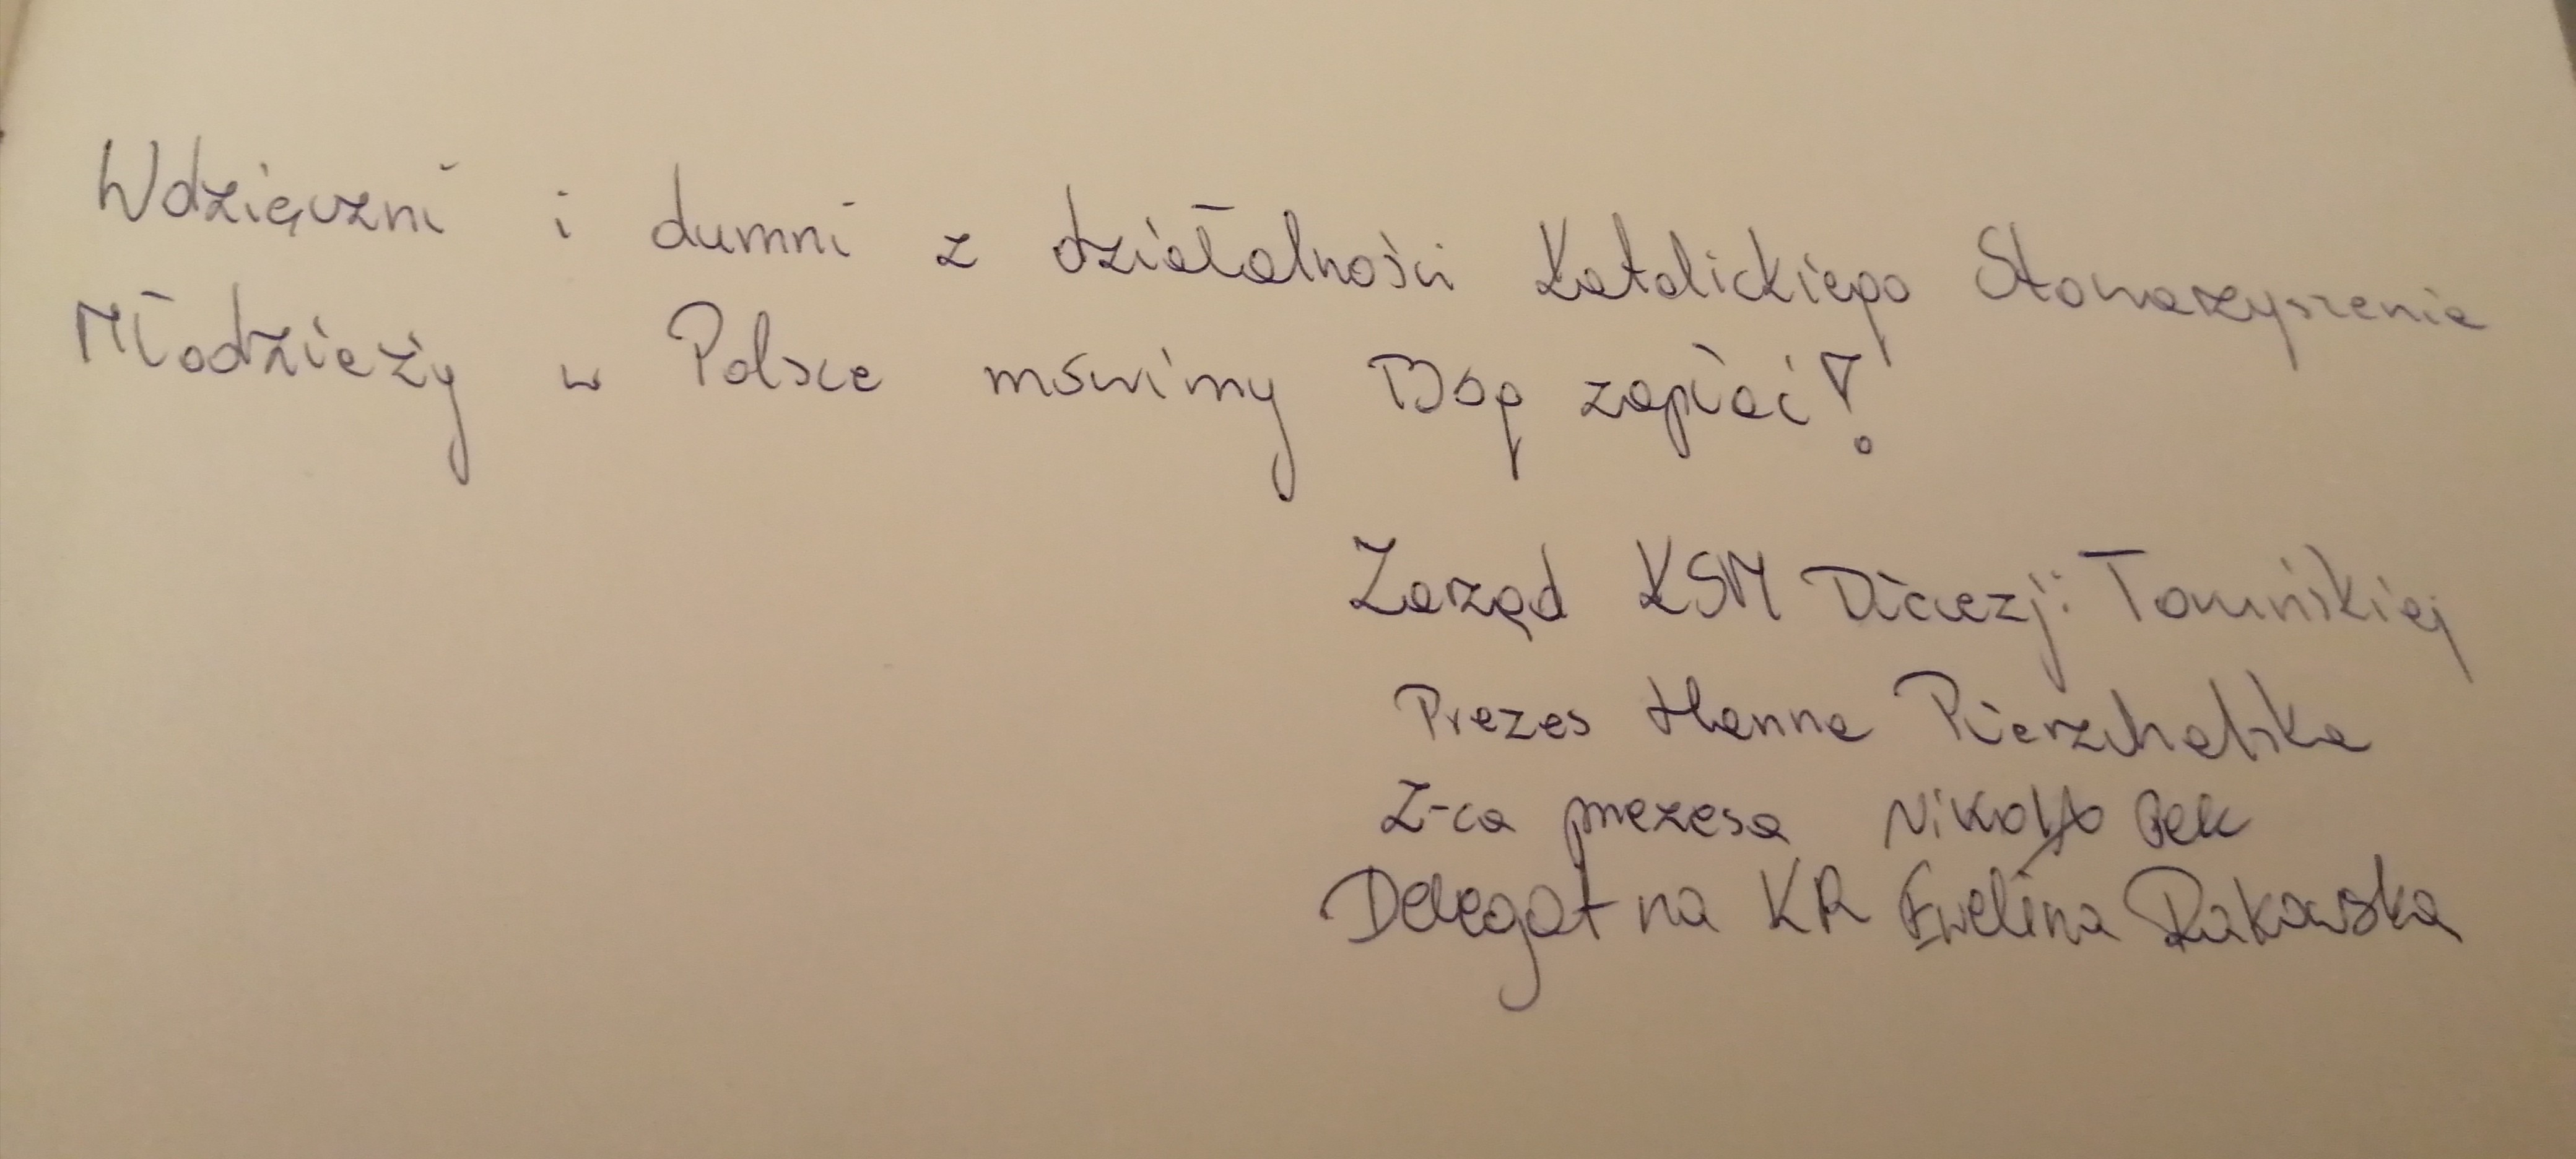 Wdzięczni i dumni z działalności Katolickiego Stowarzyszenia
Młodzieży w Polsce mówimy Bóg zapłać!
Zarząd KSM Diecezji Toruńskiej
Prezes Hanna Pierzchalska
Z-ca prezesa
Delegat na KR Ewelina Rakowska